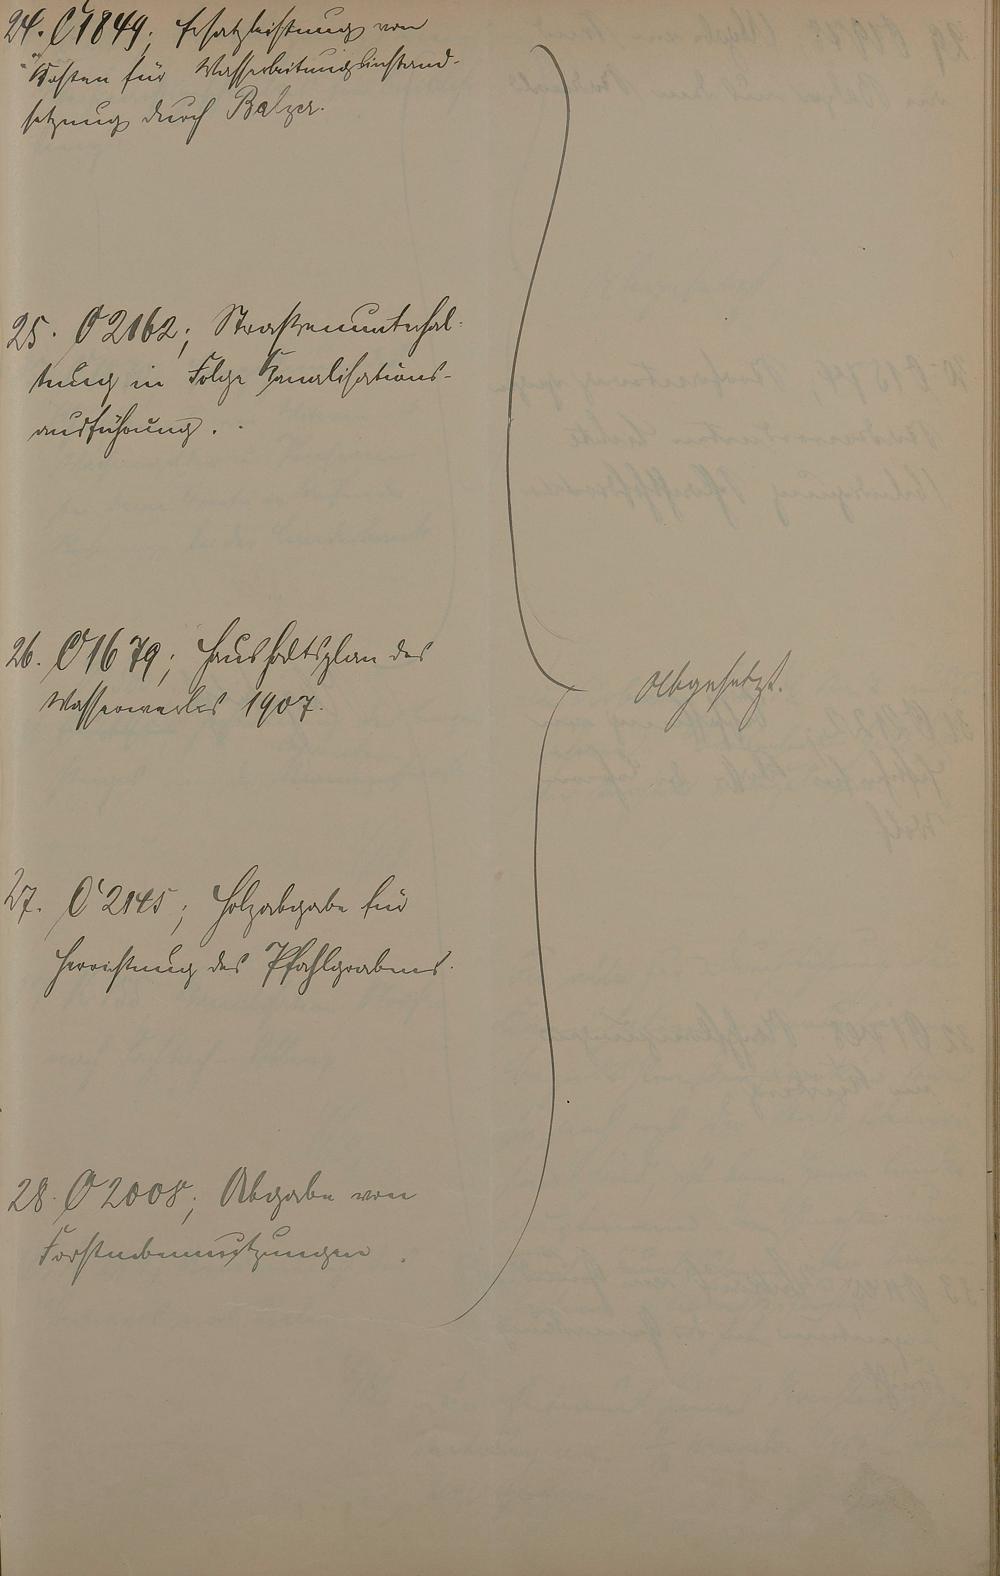 24. O 1849; Ersatzleistung von
Kosten für Wasserleitungsinstand-
setzung durch Balzer.
25. O 2162; Straßenunterhal-
tung in Folge Kanalisations-
ausführung.
26. O 1679; Haushaltsplan des
Wasserwerkes 1907.
27. O 2145; Holzabgabe für
Herrichtung des Pfahlgrabens.
28. O 2008; Abgabe von
Forstnebennutzungen.
Abgesetzt.